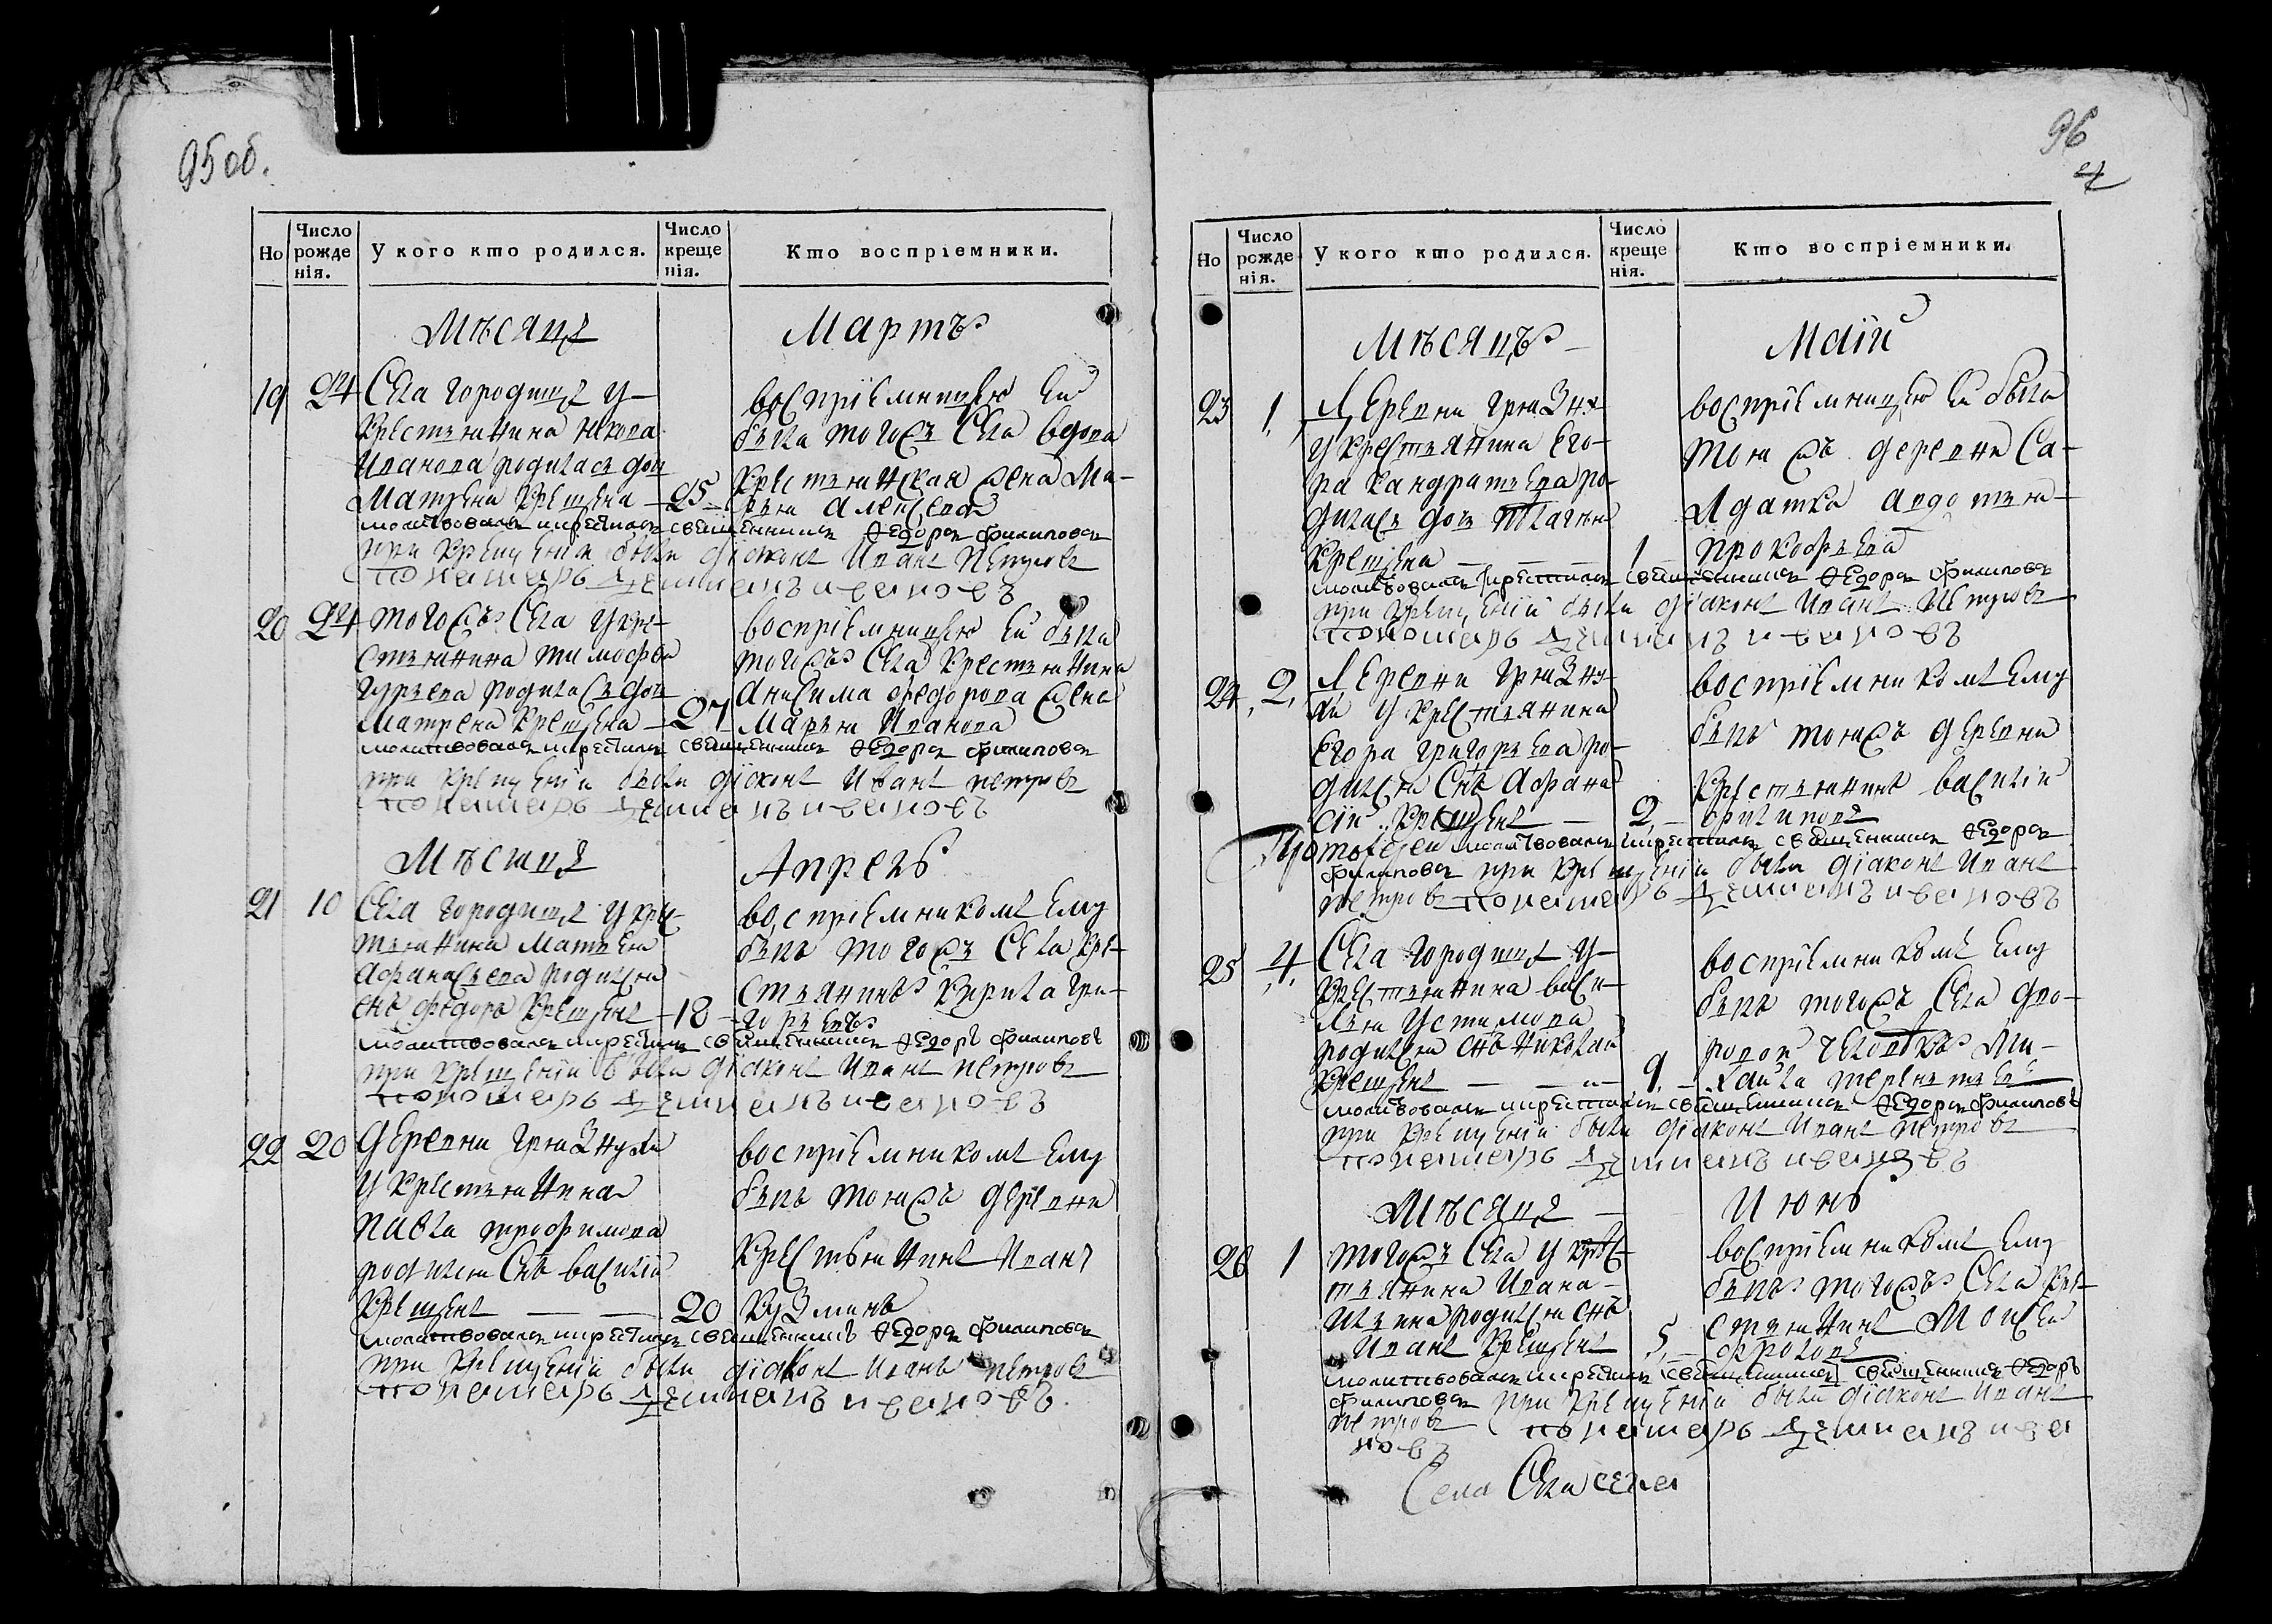 95 об.
Но
Число рождения.
У кого кто родился.
Число крещенія.
Кто воспріемники.
Мѣсяцъ Мартъ
19 24 Села городищъ у
крестьянина
Иванова родилась дочь
Матрена крещена 25
воспріемницею ей
была тогожъ села вдова
крестьянская жена Ма-
рья Алексеева
молитвовалъ и крестилъ священникъ Ѳедоръ Филиповъ
при крещеніи были діаконъ Иванъ Петровъ
пономарь Иванов
20 24 тогожъ села у кре-
стьянина тимофея
гурьева родилась дочь
матрена крещена 27
воспріемницею ей была
тогожъ села крестьянина
анисима федорова жена
Марья Иванова
молитвовалъ и крестилъ священникъ Ѳедоръ Филиповъ
при крещеніи были діаконъ Иванъ петровъ
пономарь ивановъ
Мѣсяцъ Апрель
21 10 Села городищъ у кре-
стьянина Матвея
Афанасьева родился
снъ федоръ крещенъ 18
воспріемникомъ ему
былъ тогожъ села кре-
стьянинъ Кирила гри-
горьевъ
молитвовалъ и крестилъ священникъ Ѳедоръ Филиповъ
при крещеніи были діаконъ Иванъ петровъ
пономарь ивановъ
22 20 деревни
у крестьянина
павла трофимова
родился снъ василій
крещенъ 20
воспріемникомъ ему
былъ тояжъ деревни
крестьянинъ Иванъ
Кузминъ
молитвовалъ и крестилъ священникъ Ѳедоръ Филиповъ
при крещеніи были діаконъ Иванъ петровъ
пономарь ивановъ
96
Но
Число рождения.
У кого кто родился.
Число крещенія.
Кто воспріемники.
Мѣсяцъ Маій
23 1 Деревни
у крестьянина Его-
ра кандратьева ро-
дилась дочь пелагея
крещена 1
воспріемницею ей была
тояжъ деревни са-
лдатка авдотья
прокофьева
молитвовалъ и крестилъ священникъ Ѳедоръ Филиповъ
при крещеніи были діаконъ Иванъ Петровъ
пономарь ивановъ
24 2 Деревни
у крестьянина
Егора григорьева ро-
дился снъ Афана-
сій крещенъ 2
воспріемникомъ ему
былъ тояжъ деревни
крестьянинъ василій
филиповъ
молитвовалъ и крестилъ священникъ Ѳедоръ
Филиповъ при крещеніи были діаконъ Иванъ
петровъ пономарь ивановъ
25 4 Села городищъ у
крестьянина васи-
лья устимова
родился снъ николай
крещенъ 9
воспріемникомъ ему
былъ тогожъ села дво-
ровой человѣкъ Ми-
хайла терентьевъ
молитвовалъ и крестилъ священникъ Ѳедоръ Филиповъ
при крещеніи были діаконъ Иванъ петровъ
пономарь ивановъ
Мѣсяцъ Июнь
26 1 тогожъ села у крес-
тьянина Ивана
Ильина родился снъ
Иванъ крещенъ 5
воспріемникомъ ему
былъ тогожъ села кре-
стьянинъ Моисей
фроловъ
молитвовалъ и крестилъ священникъ Ѳедоръ
Филиповъ при крещеніи были діаконъ Иванъ
петровъ пономарь ива
новъ